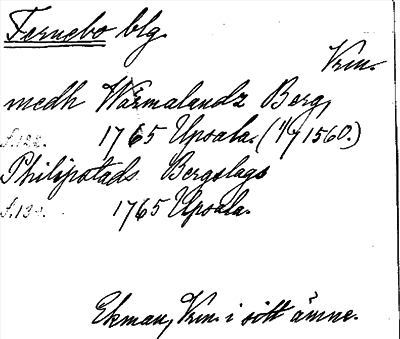 Fernebo blg.
Vrm.
medh Wärmalandz Berg,
f.122. 1765 Upsala. (1/7 1560.)
Philipstads Bergslags
f.130. 1765 Upsala.
Ekman, Vrm. i sitt ämne.